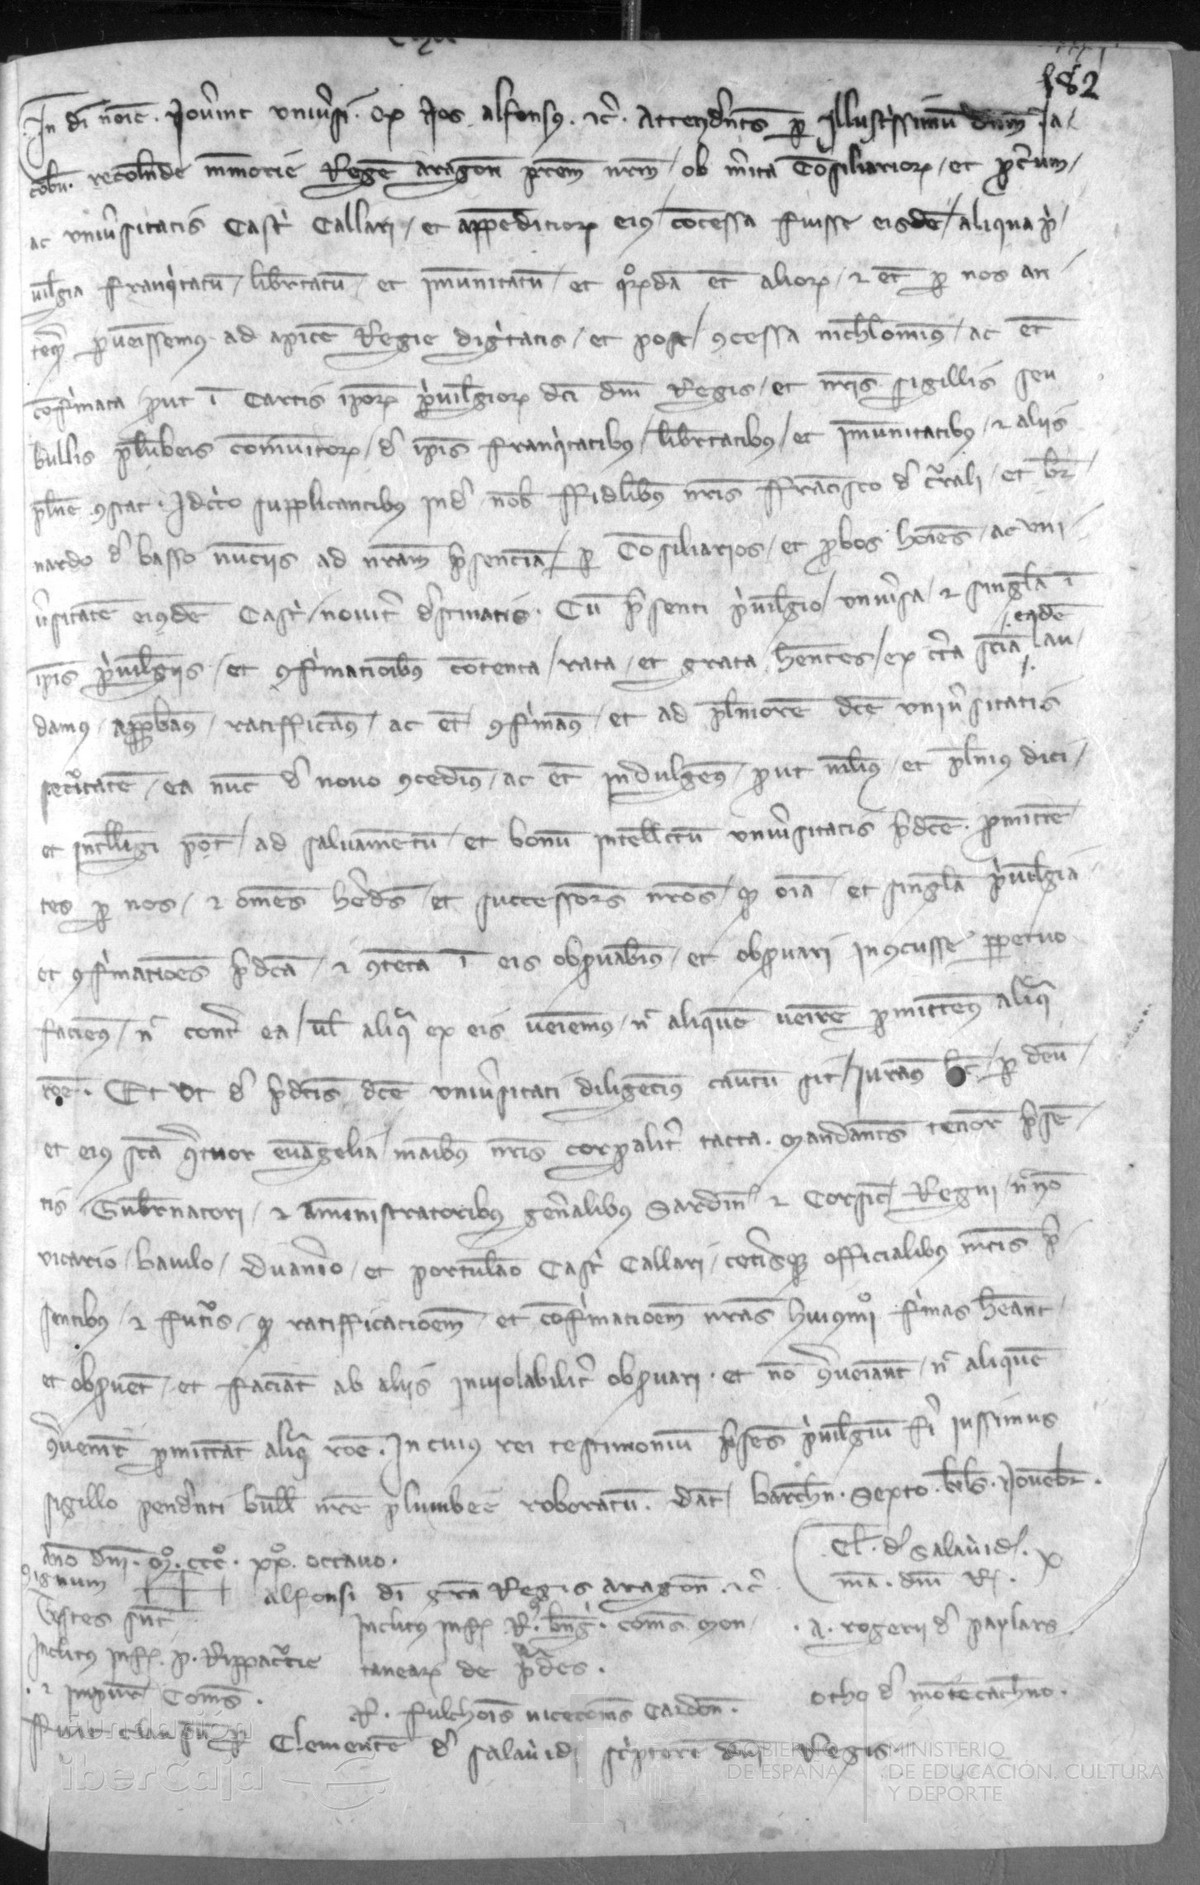 182
In dei noie. Noverint universi. Qd Nos Alfonsus. etc. Attendentes per Illustrissimu dnm Ja
cobu. recolende memorie Rege Aragon prem nrm / ob merita Consiliarior / et procerum /
ac universitatis Castri Callari / et appenditior eius / concessa fuisse eisde / aliqua pri
uilegia franqitatu / libertatu / et imunitatu / et qorda et alior / et et per nos an
teq perveissemus ad apice Regie dignitatis / et post / concessa nichilomin9 / ac et
confirmata / prout i cartis ipor privilegior dci dni Regis / et nris sigillis seu
bullis plubeis comunitor / de ipis franqitatibus / libertatibus / et imunitatibus / et aliis
plene constat. Idcirco supplicantibus inde nob ffidelibus nris ffrancisco de / et ber
nardo de basso nunciis ad nram presencia / per Consiliarios / et probos hoies / ac uni
uersitate eiusde Castri / noviter destinatis. Cu presenti privilegio / universa / et singula i
eisde
ipis privilegiis / et confirmationibus contenta / rata / et grata hentes / ex certa scia lau
damus / approbam9 / ratifficam9 / ac et confirmam9 / et ad pleniore dce universitatis
securitate / ea nuc de novo concedim9 / ac et indulgem9 / prout melius / et plenius dici /
et intelligi pot / ad salvametu / et bonu intellectu universitatis predce. promitte
tes per nos / et omes heredes / et successores nros / q oia et singula privilegia
et confirmatioes predca / et conteta i eis observabim9 / et observari inconcusse perpetuo
faciem9 / nec contra ea / vel aliqua ex eis veniemus / nec alique venire permittem9 aliqua
roe. Et ut de predictis dce universitati diligencius cautu sit / iuram9 / per deu
et eius sca quatuor evangelia / manib9 nris corporaliter tacta. Mandantes tenore prese
tis Gubernatori / et aministratoribus generalibus Sardin et Corsice Regni / necno
vicario / baiulo / duanerio / et portulano Castri Callari / ceterisq officialibus nris pre
sentibus / et futuris / q ratifficatioem / et confirmatioem nras huiusmoi firmas heant
et observet / et faciat ab aliis inviolabiliter observari. et no contraveniant / nec alique
contravenire permittat aliqua roe. In cuius rei testimoniu presens privilegiu fi iussimus
sigillo pendenti bulle nre plumbee roboratu. Dat barchn. Sexto kls. Novebr.
ano dni. mo. ccco. xxo. octavo.
Cl. de Salavide. ex
ma. dni R.
Signum +++ Alfonsi dei gra Regis Aragon. etc
Testes sunt
Inclitus infns P. Rippacurcie
et Impur Comes.
Inclitus infns R. bng. comes mon
tanear de prades.
R. fulchois vicecomes Cardon.
A. rogerii de paylars
otho de montecatheno.
Fuit clausu per Clemente de Salavide scriptore dni Regis
fundación
iberCaja
GOBIERNO
DE ESPAÑA
MINISTERIO
DE EDUCACIÓN, CULTURA
Y DEPORTE